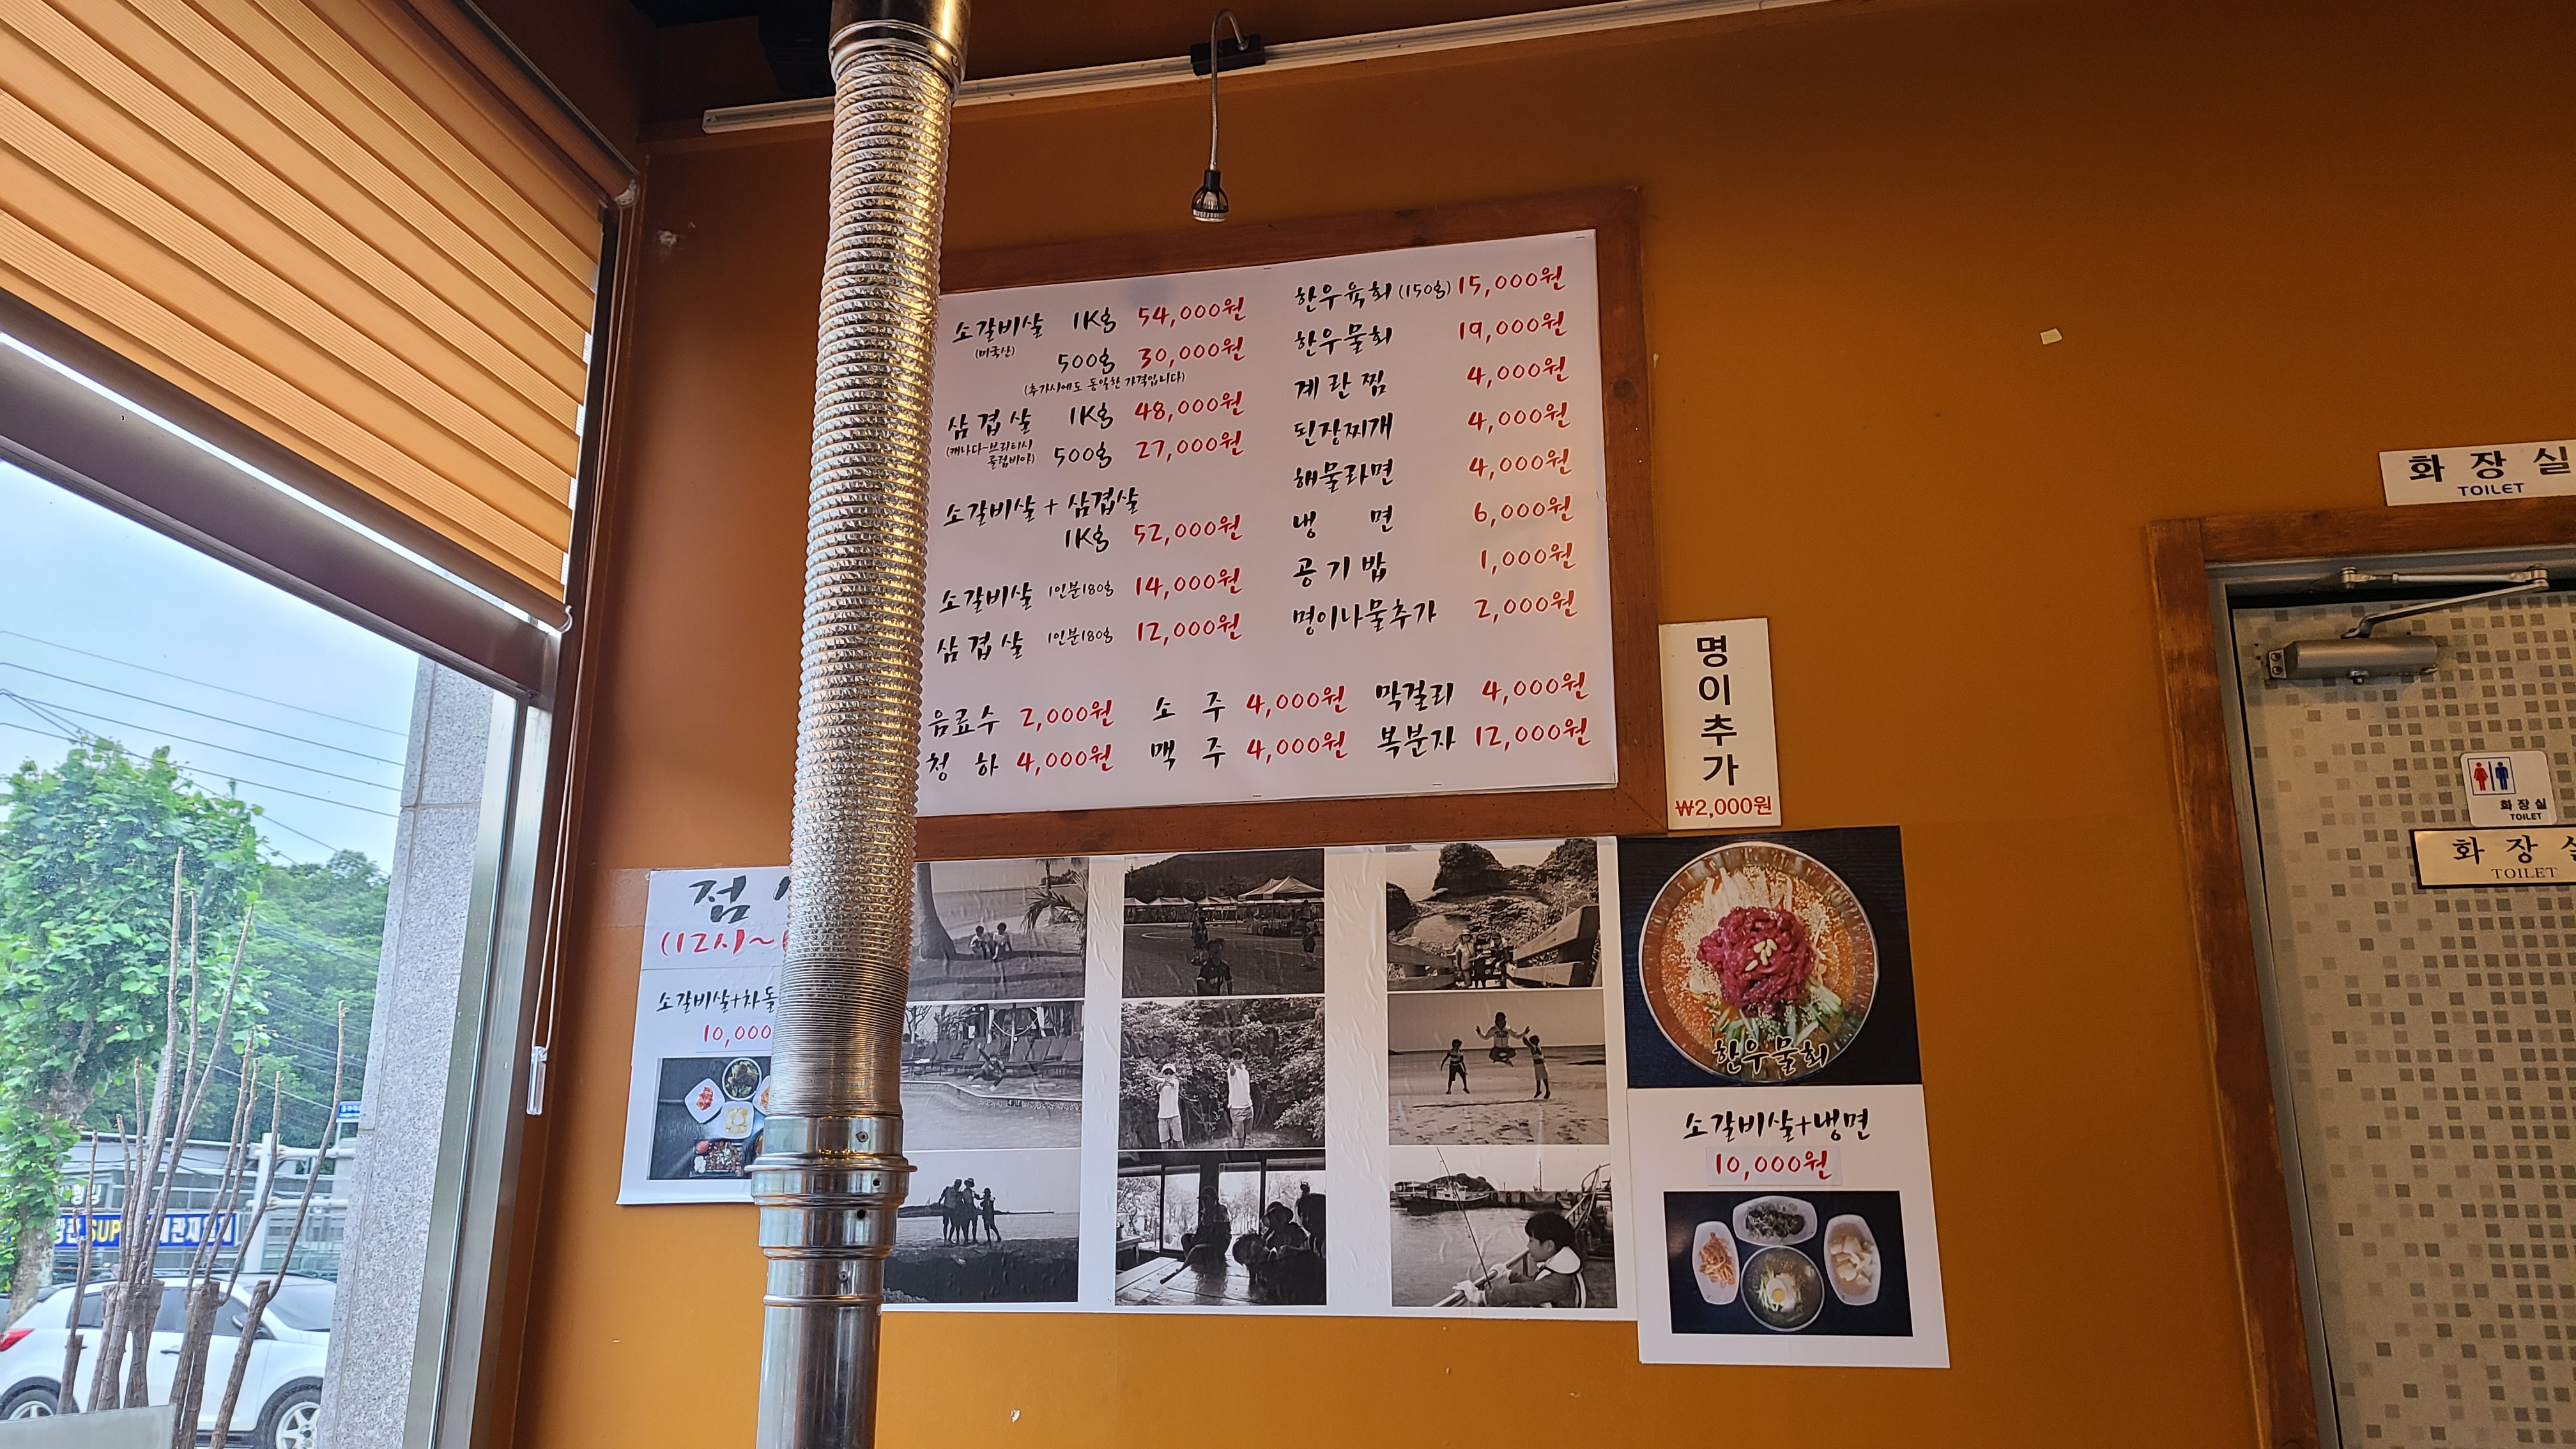 소갈비살 1Kg 54,000원
(미국산)
500g 30,000원
(추가시에도 동일한 가격입니다)
삼겹살 1Kg 48,000원
(캐나다-브리티시
콜럼비아) 500g 27,000원
소갈비살 + 삼겹살
1Kg 52,000원
소갈비살 1인분180g 14,000원
삼겹살 1인분180g 12,000원
한우육회 (150g) 15,000원
한우물회 19,000원
계란찜 4,000원
된장찌개 4,000원
해물라면 4,000원
냉 면 6,000원
공기밥 1,000원
명이나물추가 2,000원
음료수 2,000원 소 주 4,000원 막걸리 4,000원
청 하 4,000원 맥 주 4,000원 복분자 12,000원
명이추가
₩2,000원
점
(12시~
소갈비살+차돌
10,000
한우물회
소갈비살+냉면
10,000원
화장실
TOILET
화장실
TOILET
화장
TOILET
SUP